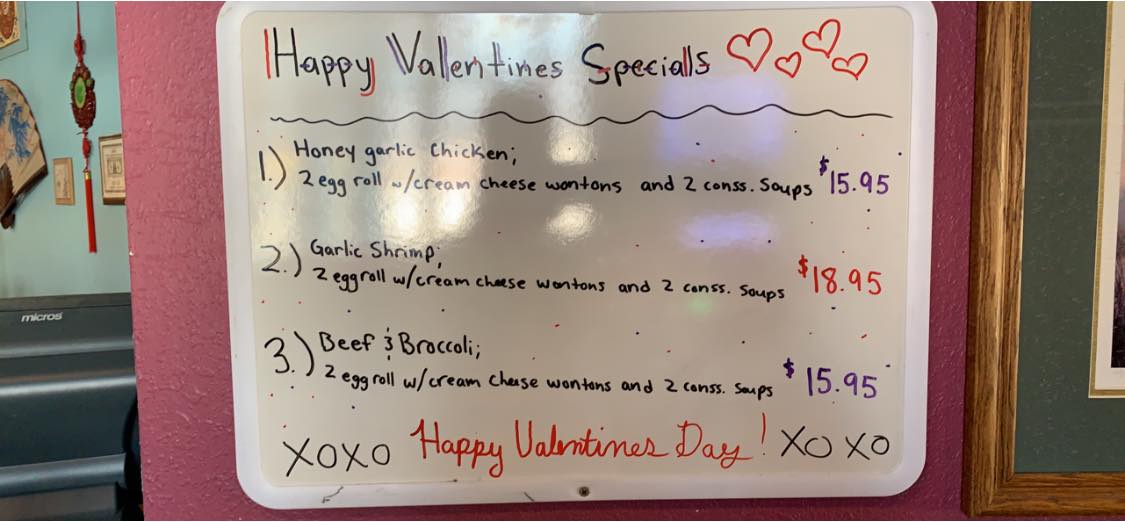 Happy Valentines Specials
1.) Honey garlic Chicken;
2 egg roll w/cream cheese wontons and 2 conss. Soups $15.95
2.) Garlic Shrimp;
2 egg roll w/cream cheese wontons and 2 conss. Soups $18.95
3.) Beef & Broccoli;
2 egg roll w/cream cheese wontons and 2 conss. Soups $15.95
XOXO Happy Valentines Day! XOXO
micros